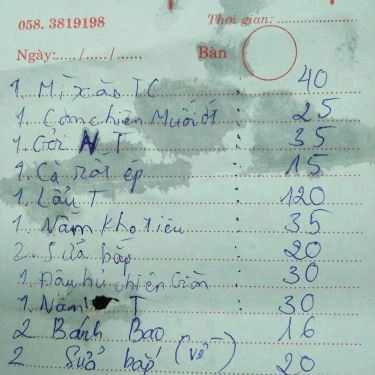 058. 3819198
Thời gian:
Ngày:...../...../..... Bàn
1. Mì xào TC : 40
1 Cơm chiên Muối ớt : 25
1. Gỏi N T : 35
1. Cà rốt ép : 15
1. Lẩu T : 120
1. Nấm kho tiêu : 35
2. Sữa bắp : 20
1. Đậu hủ chiên giòn : 30
1. Nấm T : 30
2 Bánh Bao 16
2 Sữa bắp (về) 20